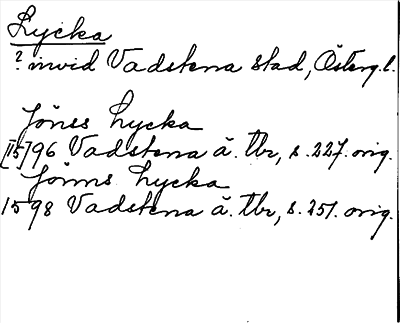 Lycka
? invid Vadstena stad, Österg.l.
Jönss Lycka
[15]96 Vadstena ä. Tbr, s. 227. orig.
Jönns Lycka
1598 Vadstena ä. Tbr, s. 251. orig.